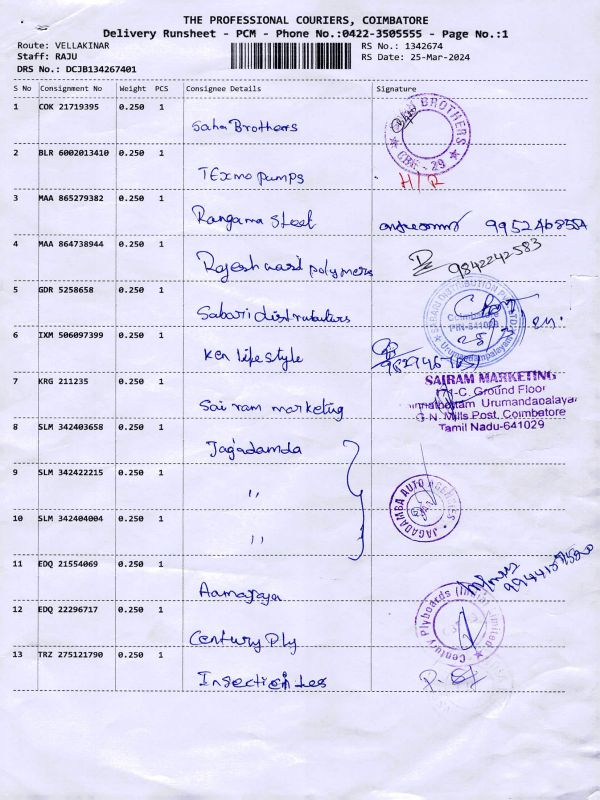 THE PROFESSIONAL COURIERS, COIMBATORE
Delivery Runsheet - PCM - Phone No.:0422-3505555 - Page No.:1
Route: VELLAKINAR RS No.: 1342674
Staff: RAJU RS Date: 25-Mar-2024
DRS No.: DCJB134267401
S No Consignment No Weight PCS Consignee Details Signature
1 COK 21719395 0.250 1
BROTHERS
CBE - 29
Saha Brothers
2 BLR 6002013410 0.250 1
Texmo pumps H/R
3 MAA 865279382 0.250 1
Rangama Steel
4 MAA 864738944 0.250 1
Rajeshwari polymers 9842242583
5 GDR 5258658 0.250 1
SABARI DISTRIBUTION
Coimbatore
PIN-641029
Sabari distributors
6 IXM 506097399 0.250 1
Ken lifestyle
7 KRG 211235 0.250 1
SAIRAM MARKETING
Ground Floor
Urumandapalayam
G.N. Mills Post, Coimbatore
Tamil Nadu-641029
Sai ram marketing
8 SLM 342403658 0.250 1
Jagadamda
9 SLM 342422215 0.250 1
JAGADAMBA AUTO AGENCIES
"
10 SLM 342404004 0.250 1
"
11 EDQ 21554069 0.250 1
Aamajaya
12 EDQ 22296717 0.250 1
Century Plyboards (India) Limited
Century Ply
13 TRZ 275121790 0.250 1